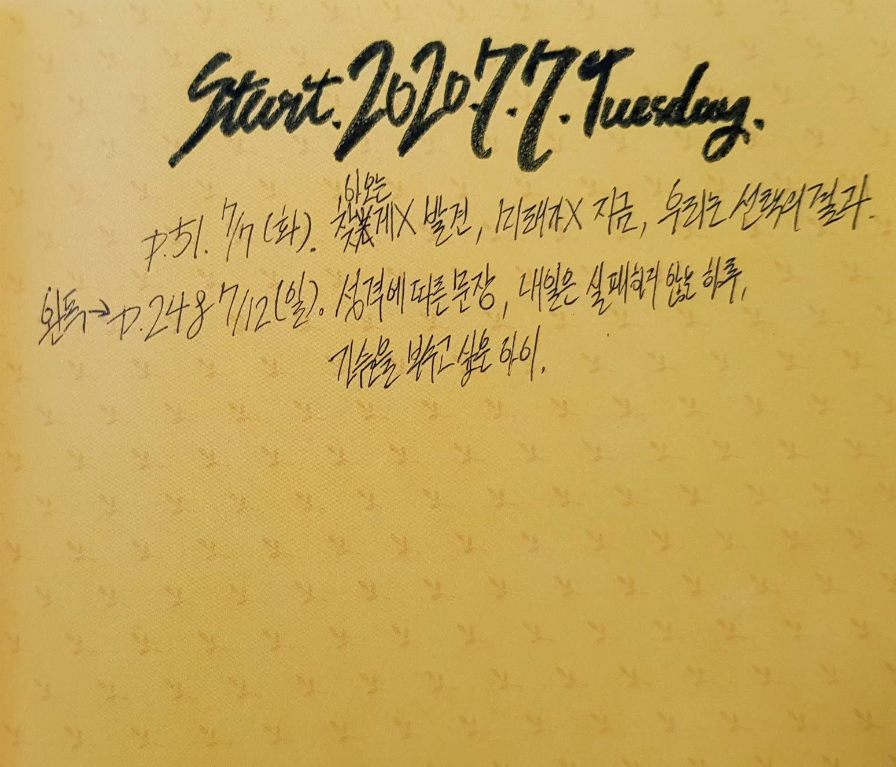 Start. 2020. 7. 7. Tuesday.
찾아오는 게X 발견, 미래가X 지금, 우리는 선택의 결과.
p.51. 7/7 (화).
완독→p.248 7/12 (일). 성격에 따른 문장, 내일은 실패하지 않은 하루,
기술을 부수고 싶은 아이.